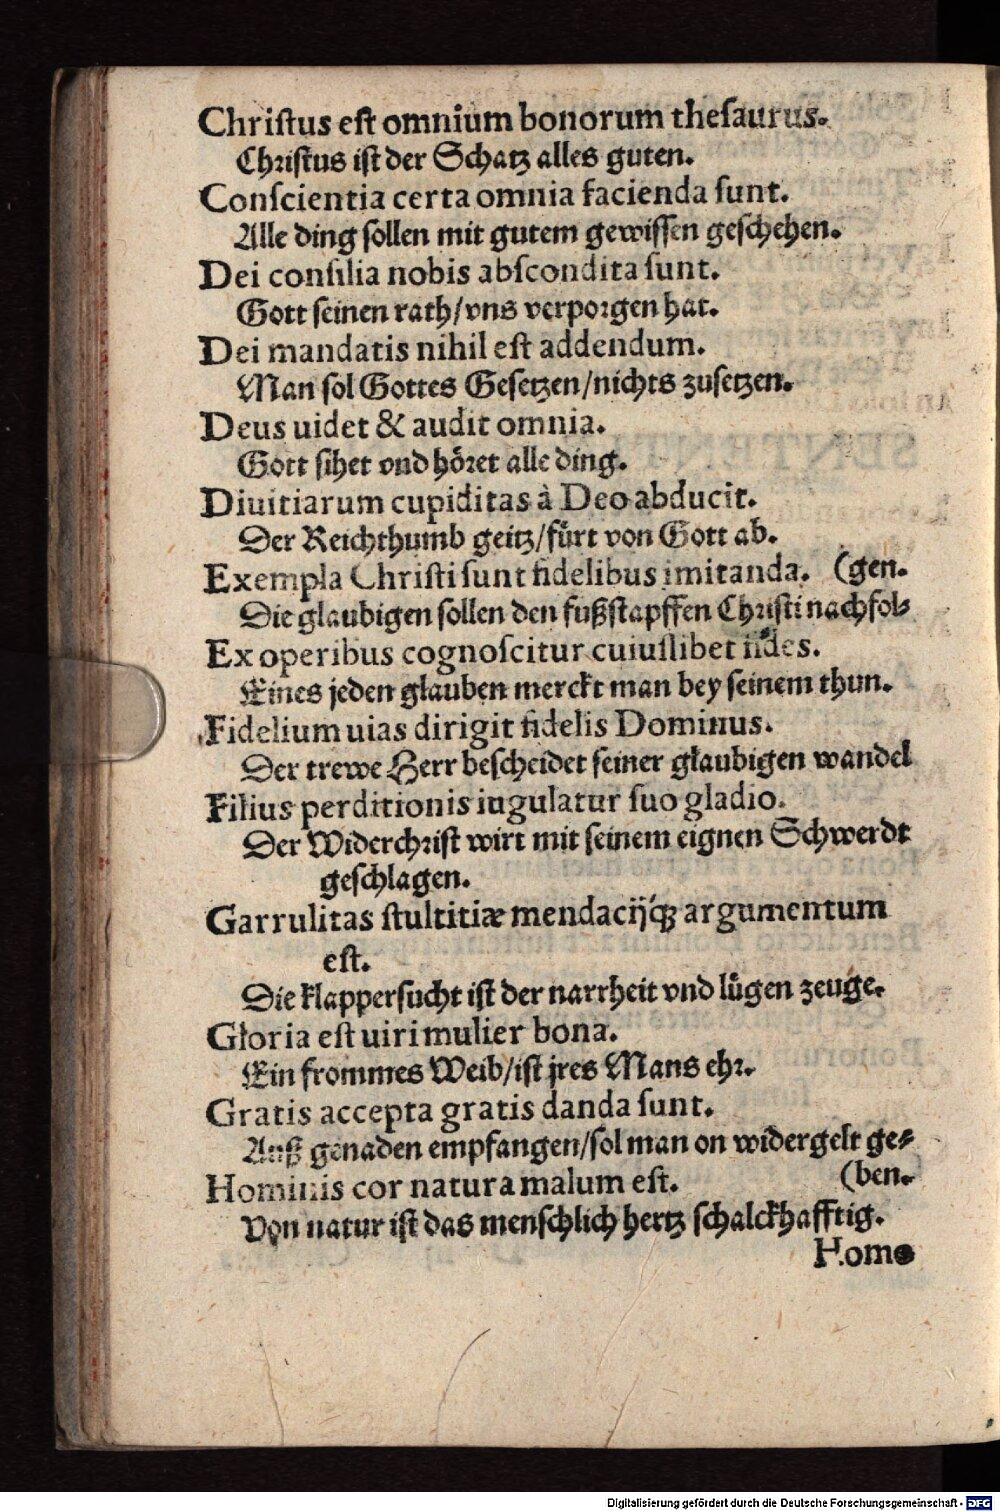 Chriſtus eſt omnium bonorum theſaurus.
Chriſtus iſt der Schatz alles guten.
Conſcientia certa omnia facienda ſunt.
Alle ding ſollen mit gutem gewiſſen geſchehen.
Dei conſilia nobis abſcondita ſunt.
Gott ſeinen rath/vns verporgen hat.
Dei mandatis nihil eſt addendum.
Man ſol Gottes Geſetzen/nichts zuſetzen.
Deus uidet & audit omnia.
Gott ſihet vnd höret alle ding.
Diuitiarum cupiditas à Deo abducit.
Der Reichthumb geitz/fürt von Gott ab.
Exempla Chriſti ſunt fidelibus imitanda. (gen.
Die glaubigen ſollen den fußſtapffen Chriſti nachfol⸗
Ex operibus cognoſcitur cuiuſlibet fides.
Eines jeden glauben merckt man bey ſeinem thun.
Fidelium uias dirigit fidelis Dominus.
Der trewe Herr beſcheidet ſeiner glaubigen wandel
Filius perditionis iugulatur ſuo gladio.
Der Widerchriſt wirt mit ſeinem eignen Schwerdt
geſchlagen.
Garrulitas ſtultitiæ mendacijq́ꝫ argumentum
eſt.
Die klapperſucht iſt der narrheit vnd lügen zeuge.
Gloria eſt uiri mulier bona.
Ein frommes Weib/iſt jres Mans ehr.
Gratis accepta gratis danda ſunt.
Auß genaden empfangen/ſol man on widergelt ge⸗
Hominis cor natura malum eſt. (ben.
Von natur iſt das menſchlich hertz ſchalckhafftig.
Homo
Digitalisierung gefördert durch die Deutsche Forschungsgemeinschaft - DFG